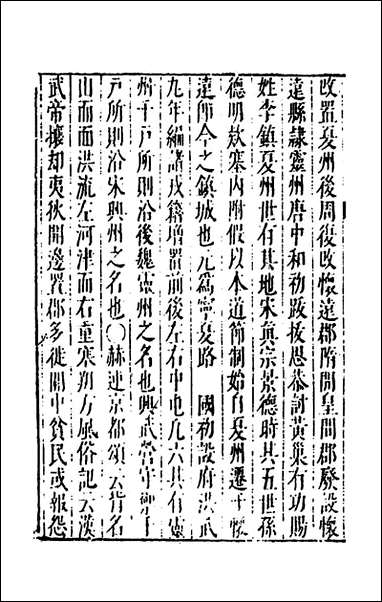 改置夏州後周復改懷遠郡隋開皇間郡廢設懷
遠縣隸靈州唐中和初跋拔思恭討黃巢有功賜
姓李鎮夏州世有其地宋真宗景德時其五世孫
德明欵塞內附假以本道節制始自夏州遷于懷
遠即今之鎮城也元爲寧夏路 國初設府洪武
九年編諸戎籍增置前後左右中屯凡六其有靈
州千戶所則沿後魏靈州之名也興武營守禦千
戶所則沿宋興州之名也〇赫連京都頌云背名
山而面洪流左河津而右重塞朔方風俗記云漢
武帝攘却夷狄開邊置郡多徙關中貧民或報怨